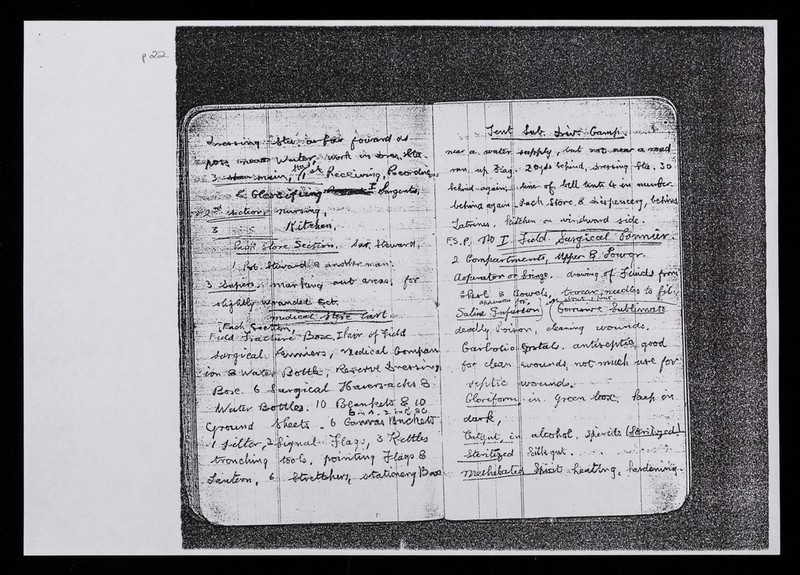 p 22
Dressing Sta. as far foward as
poss near Water, work in Dres. Sta.
3 main, 1st Receiving, Recording
& Classifying I Surgents,
2nd section, nursing,
3 Kitchen.
Pack Store Section. Sar. Steward,
1 Pot. Steward & another man.
3 marking out areas, for
slightly wounded Sct.
medical Store Cart.
Each Section,
Field Fracture Box, 1 Pair of Field
Surgical Panniers, Medical Compan
ion & Water Bottle, Reserve Dressing
Box. 6 Surgical Haversacks &
Water Bottles. 10 Blankets & 10
Ground Sheets. 6 Canvas Buckets
1 filter, 2 Signal Flags, 3 Kettles
trenching tools, pointing Flags &
Lantern, 6 Stretchers, stationery Box
Tent Sub. Div. Camp
near a water supply, but not near a road
run up Flag. 20yds behind, dressing Sta. 30
behind again, line of bell tents 4 in number.
behind again Pack Store & dispensery, behind
Latrines, Kitchen on windward side.
F.S.P. No I Field Surgical Pannier.
2 Compartments, Upper & Lower.
Asperator or Syringe. drawing of Fluids from
Chest & Bowels, trocar needles to fit.
apparatus for
Saline Infusion (Corrosive Sublimate
deadly Poison, cleaning wounds.
Carbolic Crystals. antiseptic, good
for clean wounds, not much use for
septic wounds.
Cloriform in green box. keep in
dark,
Catgut, in alcohol. Spirits (Sterilized)
Sterilized Silk gut.
Methelated Spirit heating, hardening.